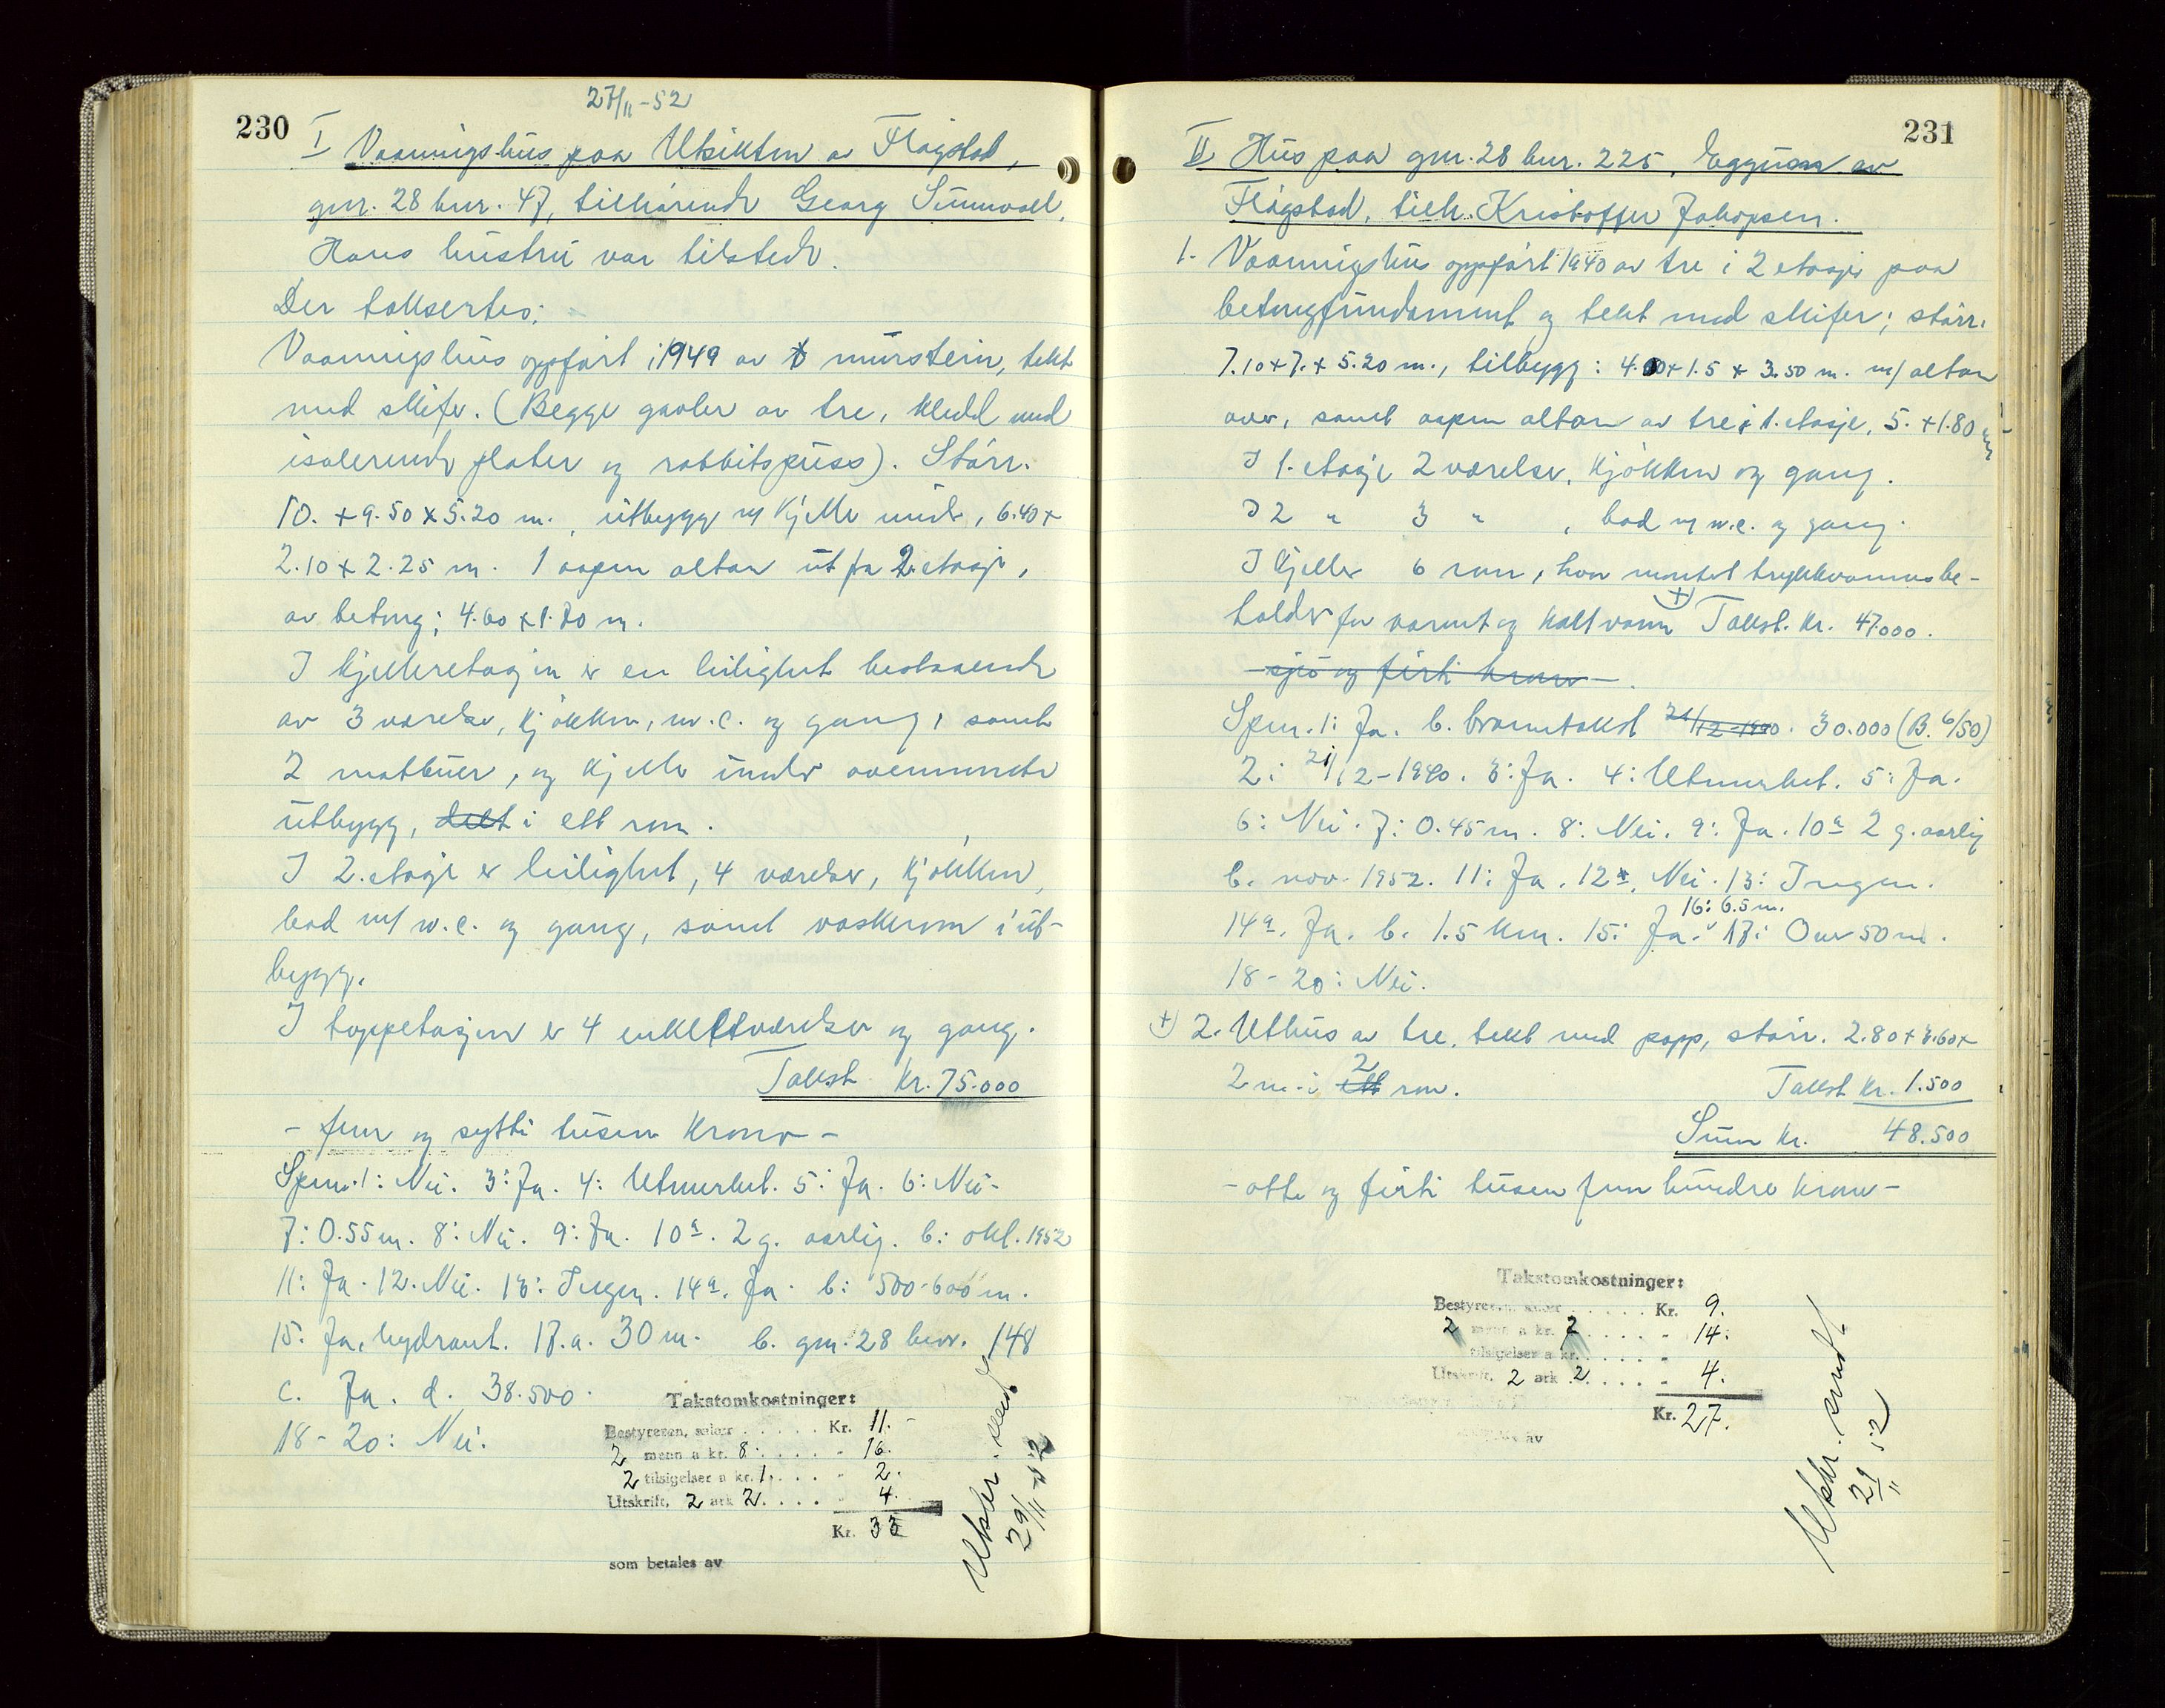 230
27/11-52
I Vaaningshus paa Utsikten av Flagstad,
gnr. 28 bnr. 47, tilhørende Georg Sunnvoll.
Hans hustru var tilstede.
Der taksertes:
Vaaningshus oppført i 1949 av murstein, tekt
med skifer. (Begge gavler av tre, kledd med
isolerende plater og rabbitspuss). Størr.
10. + 9.50 x 5.20 m., utbygg m/ kjeller under, 6.40 +
2.10 + 2.25 m. 1 aapen altan ut fra 2. etasje,
av betong; 4.60 + 1.80 m.
I kjelleretasjen er en leilighet bestaaende
av 3 værelser, kjøkken, w.c. og gang, samt
2 matbuer, og kjeller under ovennevnte
utbygg, delt i ett rom.
I 2. etasje er leilighet, 4 værelser, kjøkken,
bad m/ w.c. og gang, samt vaskerom i ut-
bygg.
I toppetasjen er 4 enkeltværelser og gang.
Takst kr. 75.000
- fem og sytti tusen kroner -
Spm. 1: Nei. 3: Ja. 4: Utmerket. 5: Ja. 6: Nei.
7: 0.55 m. 8: Nei. 9: Ja. 10a. 2 g. aarlig. b: okt. 1952
11: Ja. 12. Nei. 13: Ingen. 14a. Ja. b: 500-600 m.
15. Ja, hydrant. 17.a. 30 m. b. gnr. 28 bnr. 148
c. Ja. d. 38.500.
18-20: Nei.
Takstomkostninger:
Bestyreren, salær . . . . . Kr. 11.-
2 menn a kr. 8. . . . . - 16.
2 tilsigelser a kr. 1. . . . - 2.
Utskrift, 2 ark 2. . . . . - 4.
Kr. 33
som betales av
Utskr. sendt
29/11-52
231
II Hus paa gnr. 28 bnr. 225, av
Flagstad, tilh. Kristoffer Jakopsen.
1. Vaaningshus oppført 1940 av tre i 2 etasjer paa
betongfundament og tekt med skifer; størr.
7.10 + 7. + 5.20 m., tilbygg: 4.00 + 1.5 + 3.50 m. m/ altan
over, samt aapen altan av tre i 1. etasje, 5. + 1.80 m
I 1. etasje 2 værelser, kjøkken og gang.
I 2 " 3 " , bad m/ w.c. og gang.
I kjeller 6 rom, hvor montert trykkvannsbe-
holder for varmt og kaldt vann +) Takst. kr. 47.000.
- sju og førti kroner -.
Spm. 1: Ja. b. branntakst 21/12-1940. 30.000 (B. 6/50)
2: 21/12-1940. 3: Ja. 4: Utmerket. 5: Ja.
6: Nei. 7: 0.45 m. 8: Nei. 9: Ja. 10a 2 g. aarlig
b. nov. 1952. 11: Ja. 12. Nei. 13: Ingen.
14a. Ja. b. 1.5 km. 15: Ja. 16: 6.5 m. 17: Over 50 m.
18-20: Nei.
+) 2. Uthus av tre, tekt med papp, størr. 2.80 + 3.60 +
2 m. i ett 2 rom. Takst kr. 1.500
Sum kr. 48.500
- otte og førti tusen fem hundre kroner -
Takstomkostninger:
Bestyreren, salær . . . . . Kr. 9.
2 menn a kr. 2 . . . . - 14.
tilsigelser a kr. . . . . -
Utskrift, 2 ark 2. . . . . - 4.
Kr. 27.
av
Utskr. sendt
29/11 52